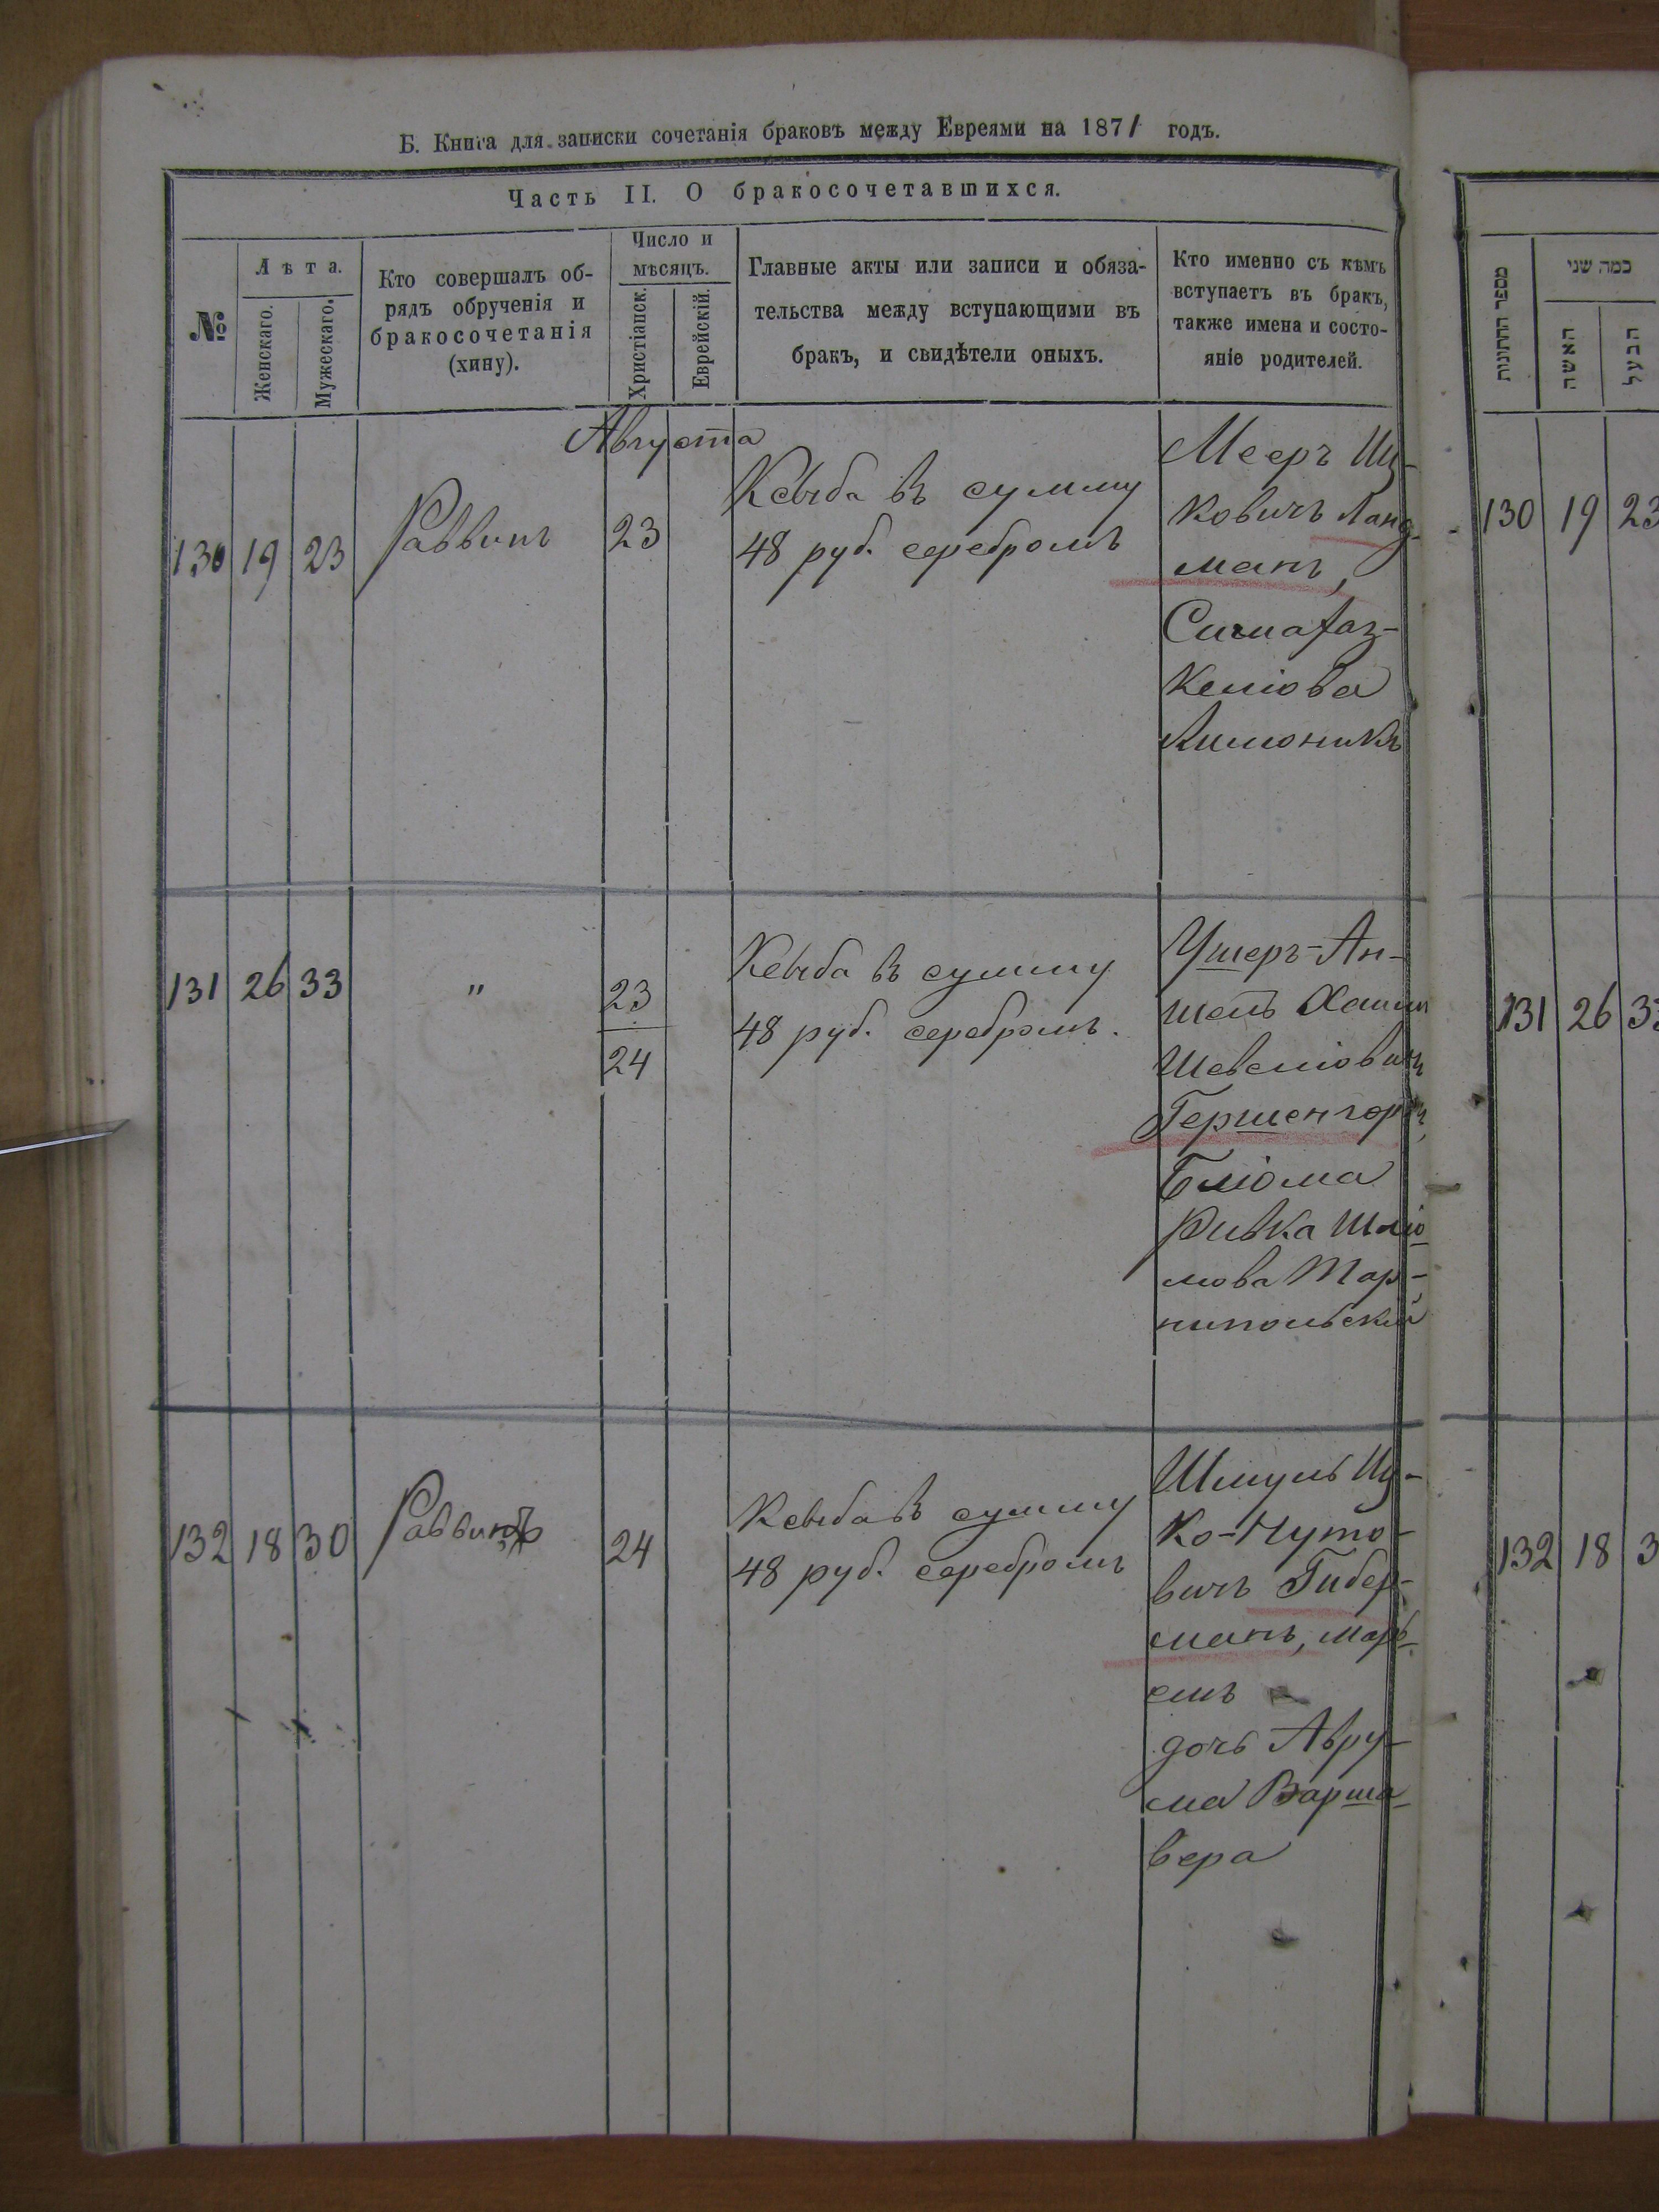 Б. Книга для записки сочетанія браковъ между Евреями на 1871 годъ.
Часть II. О бракосочетавшихся.
№
Лѣта.
Женскаго.
Мужескаго.
Кто совершалъ об-
рядъ обрученія и
бракосочетанія
(хину).
Число и
мѣсяцъ.
Христіанск.
Еврейскій.
Главные акты или записи и обяза-
тельства между вступающими въ
бракъ, и свидѣтели оныхъ.
Кто именно съ кѣмъ
вступаетъ въ бракъ,
также имена и состо-
яніе родителей.
Августа
130 19 23 Раввинъ 23
Ксыба въ сумму
48 руб. серебромъ
Мееръ Иц-
ковичъ Ланд-
манъ,
Сима Хаз-
келіова
Лимоникъ
131 26 33 " 23
24
Ксыба въ сумму
48 руб. серебромъ.
Ушеръ-Ан-
шель Хаим
Шевеліовичъ
Гершенгорнъ,
Бліома
Ривка Шліо-
мова Тар-
нипольскій
132 18 30 Раввинъ 24
Ксыба въ сумму
48 руб. серебромъ
Шмуль Иц-
ко-Нуто-
вичъ Гибер-
манъ, Марь-
емъ
дочь Авру-
ма Варша-
вера
מספר החתונות
כמה שני
האשה
הבעל
130 19 23
131 26 33
132 18 3